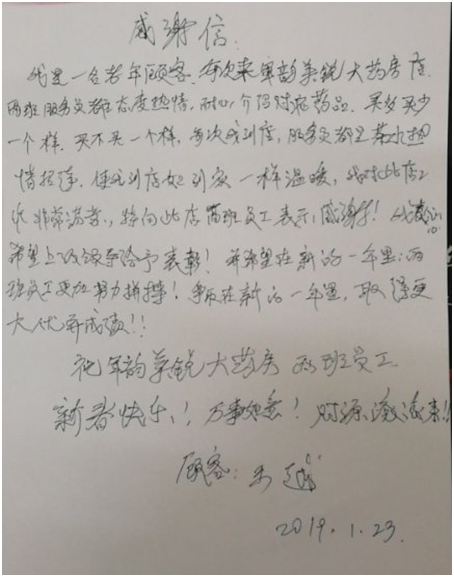 感谢信:
我是一名老年顾客.每次来军彭美锐大药房店.
两班服务员都态度热情,耐心介绍对症药品.买多买少
一个样.买不买一个样,每次我到店,服务员都是茶水热
情招待.使我到店如到家一样温暖,我对此店工
作非常满意,特向此店两班员工表示感谢!我衷心
希望上级领导给予表彰!并希望在新的一年里:两
班员工更加努力拼搏!争取在新的一年里,取得更
大优异成绩!!
祝 美锐大药房 两班员工
新春快乐!,万事如意!财源滚滚来!!
顾客:王
2019.1.23.